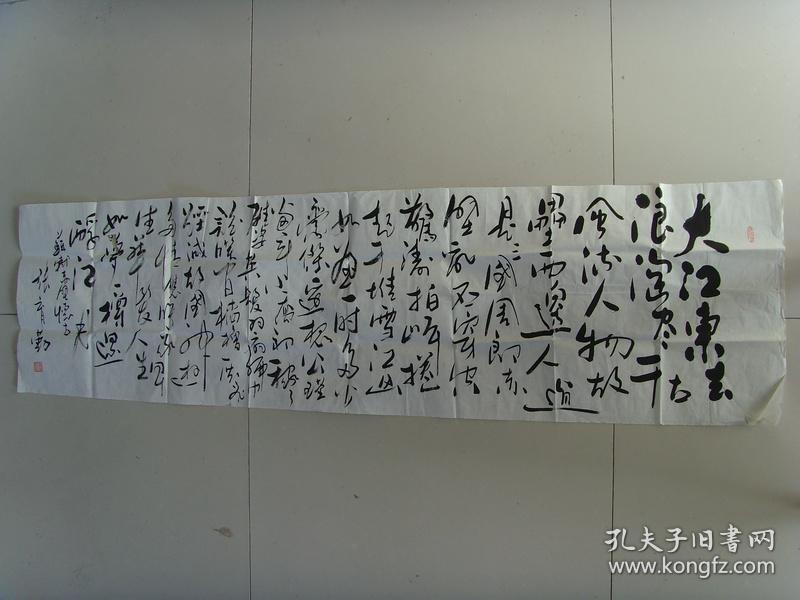 大江東去
浪淘尽千古
風流人物故
壘西邊人道
是三國周郎赤
壁亂石穿空
驚濤拍岸捲
起千堆雪江山
如画一時多少
豪傑遥想公瑾
當年小喬初嫁了
雄姿英發羽扇綸巾
談笑間檣櫓灰飛
煙滅故國神遊
多情應笑我早
生華髮人生
如夢一樽還
酹江月
蘇軾赤壁懷古
張育勤
孔夫子旧書网
www.kongfz.com